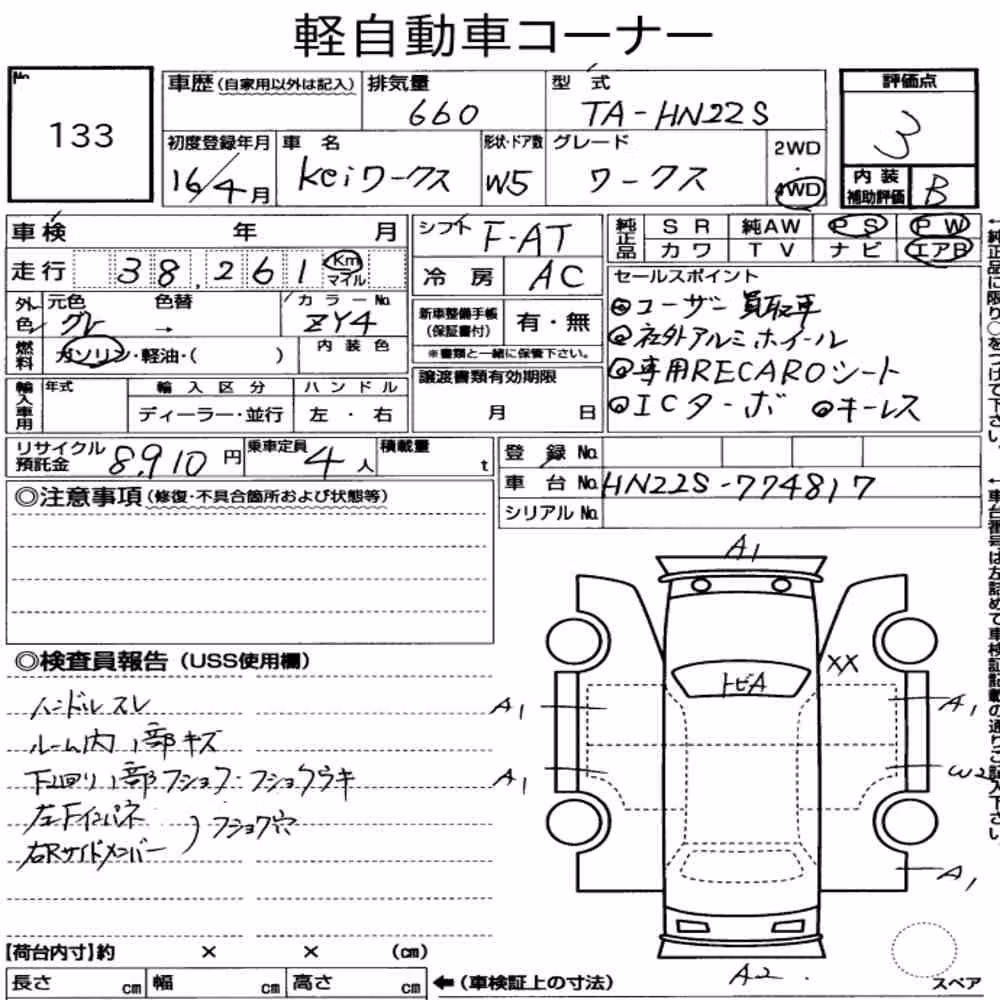 軽自動車コーナー
No.
133
車歴(自家用以外は記入) 排気量 660 型式 TA-HN22S
初度登録年月 16/4月 車名 Keiワークス 形状・ドア数 W5 グレード ワークス 2WD・4WD
評価点 3
内装補助評価 B
車検 年 月
走行 38,261 Km マイル
外色 元色 グレ 色替 → カラーNo. ZY4
燃料 ガソリン・軽油・( ) 内装色
輸入車用 年式 輸入区分 ディーラー・並行 ハンドル 左・右
シフト F-AT
冷房 AC
新車整備手帳(保証書付) 有・無
※書類と一緒に保管下さい。
譲渡書類有効期限
月 日
純正品 SR 純AW PS PW
カワ TV ナビ エアB
セールスポイント
◎ユーザー買取車
◎社外アルミホイール
◎専用RECAROシート
◎ICターボ ◎キーレス
リサイクル預託金 8,910円 乗車定員 4人 積載量 t
登録No.
車台No. HN22S-774817
シリアルNo.
◎注意事項(修復・不具合箇所および状態等)
◎検査員報告(USS使用欄)
ハンドルスレ
ルーム内1部キズ
下回り1部フショク・フショクウキ
左Fインパネ
右Rサイドメンバー
)フショク穴
A1
XX
トビA
A1
A1
A1
W2
A1
A2
スペア
【荷台内寸】約 × × (cm)
長さ cm 幅 cm 高さ cm ←(車検証上の寸法)
←純正品に限り○をつけて下さい。
←車台番号は左詰めで車検証記載の通りご記入下さい。